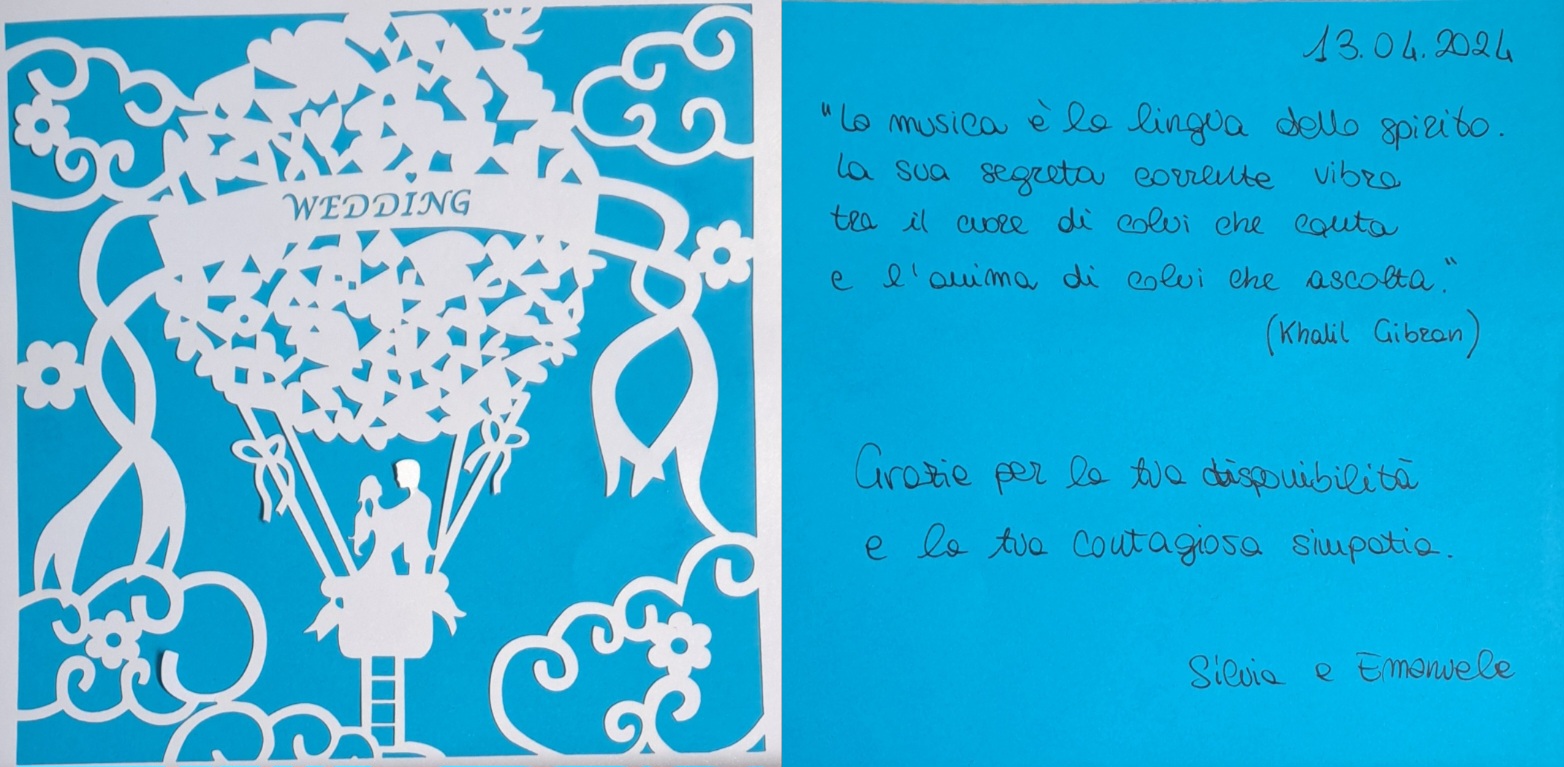 WEDDING
13.04.2024
"La musica è la lingua dello spirito.
La sua segreta corrente vibra
tra il cuore di colui che canta
e l'anima di colui che ascolta."
(Khalil Gibran)
Grazie per la tua disponibilità
e la tua contagiosa simpatia.
Silvia e Emanuele